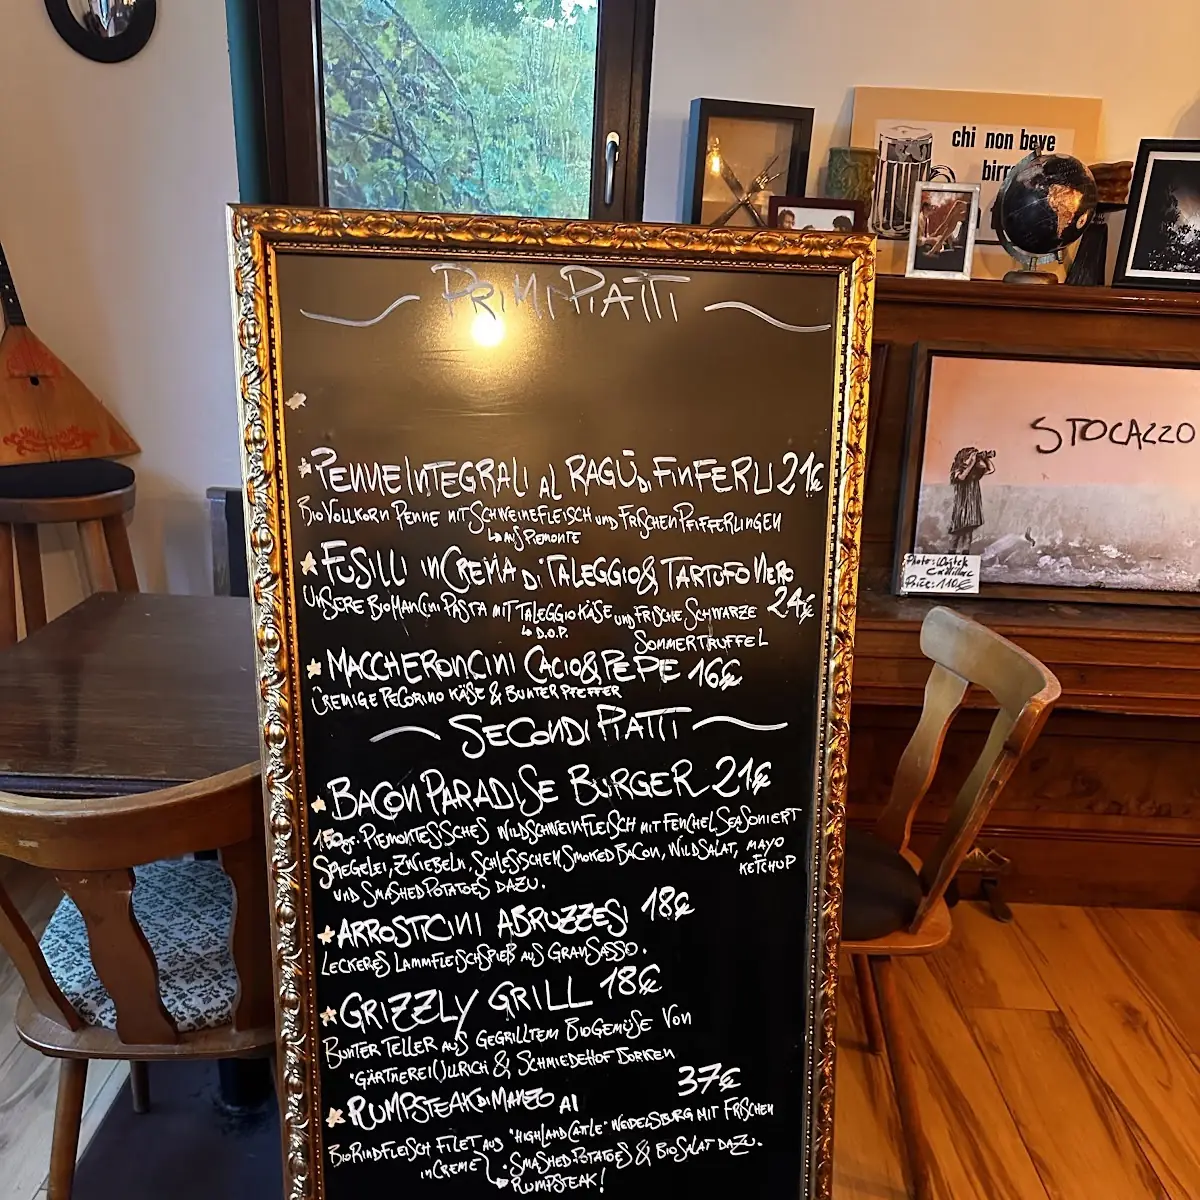 chi non beve
birr
STOCAZZO
Price: 110€
PRIMI PIATTI
PENNE INTEGRALI AL RAGÙ DI FINFERLI 21€
BIO VOLLKORN PENNE MIT SCHWEINEFLEISCH UND FRISCHEN PFIFFERLINGEN
AUS PIEMONTE
FUSILLI IN CREMA DI TALEGGIO & TARTUFO NERO
24€
UNSERE BIO MANCINI PASTA MIT TALEGGIO KÄSE UND FRISCHE SCHWARZE
D.O.P.
SOMMERTRUFFEL
MACCHERONCINI CACIO & PEPE 16€
CREMIGE PECORINO KÄSE & BUNTER PFEFFER
SECONDI PIATTI
BACON PARADISE BURGER 21€
150gr. PIEMONTESISCHES WILDSCHWEINFLEISCH MIT FENCHEL SEASONIERT
SPIEGELEI, ZWIEBELN, SCHLESISCHEN SMOKED BACON, WILDSALAT, MAYO
KETCHUP
UND SMASHED POTATOES DAZU.
ARROSTICINI ABRUZZESI 18€
LECKERES LAMMFLEISCHSPIEß AUS GRAN SASSO.
GRIZZLY GRILL 18€
BUNTER TELLER AUS GEGRILLTEM BIOGEMÜSE VON
"GÄRTNEREI ULLRICH & SCHMIEDEHOF BORKEN
37€
RUMPSTEAK DI MANZO AI
BIO RINDFLEISCH FILET AUS "HIGHLAND CATTLE" WEIDELSBURG MIT FRISCHEN
IN CREME
SMASHED POTATOES & BIO SALAT DAZU.
RUMPSTEAK!